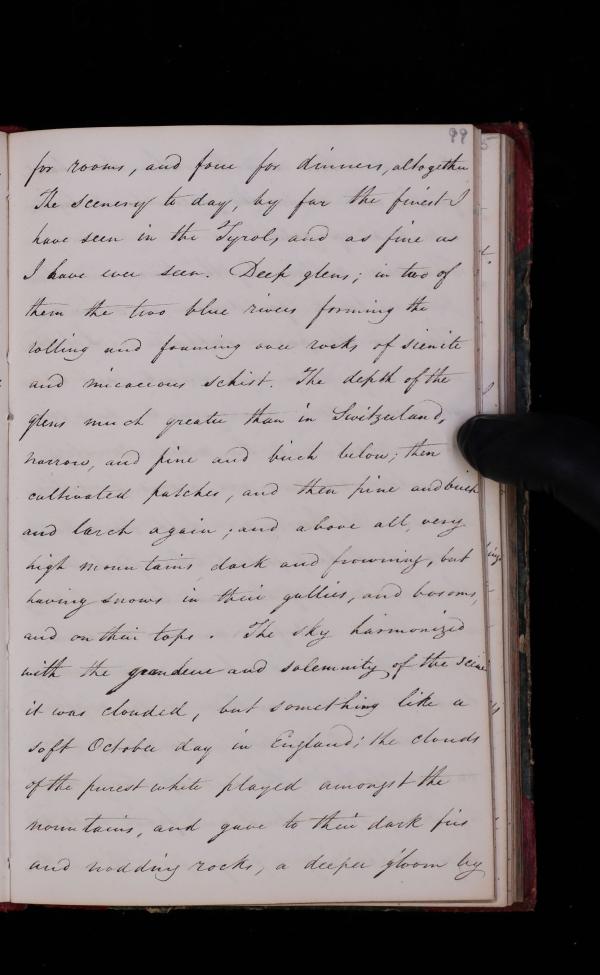 99
for rooms, and four for dinners, altogether
The scenery to day, by far the finest I
have seen in the Tyrol, and as fine as
I have ever seen. Deep glens; in two of
them the two blue rivers forming the
rolling and foaming over rocks of sienite
and micaceous schist. The depth of the
glens much greater than in Switzerland,
narrow, and pine and birch below; then
cultivated patches, and then pine and birch
and larch again; and above all, very
high mountains dark and frowning, but
having snows in their gullies, and bosoms,
and on their tops. The sky harmonized
with the grandeur and solemnity of the scene
it was clouded, but something like a
soft October day in England; the clouds
of the purest white played amongst the
mountains, and gave to their dark firs
and nodding rocks, a deeper gloom by